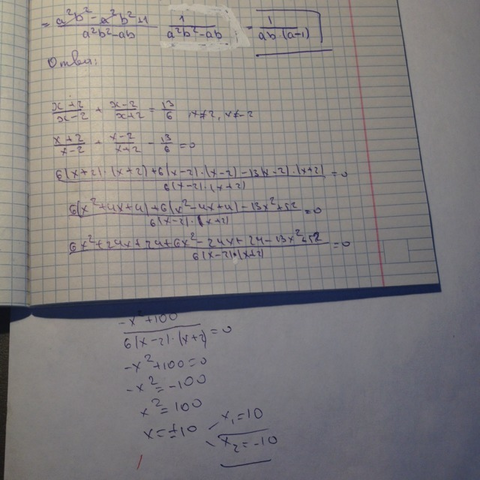 = a²b² - a²b² + 1 / a²b² - ab = 1 / a²b² - ab = 1 / ab·(a-1)
Ответ:
x+2/x-2 + x-2/x+2 = 13/6, x≠2, x≠-2
x+2/x-2 + x-2/x+2 - 13/6 = 0
6(x+2)·(x+2)+6(x-2)·(x-2)-13(x-2)·(x+2) / 6(x-2)·(x+2) = 0
6(x²+4x+4)+6(x²-4x+4)-13x²+52 / 6(x-2)·(x+2) = 0
6x²+24x+24+6x²-24x+24-13x²+52 / 6(x-2)·(x+2) = 0
-x²+100 / 6(x-2)·(x+2) = 0
-x²+100=0
-x²=-100
x²=100
x=±10
x₁=10
x₂=-10